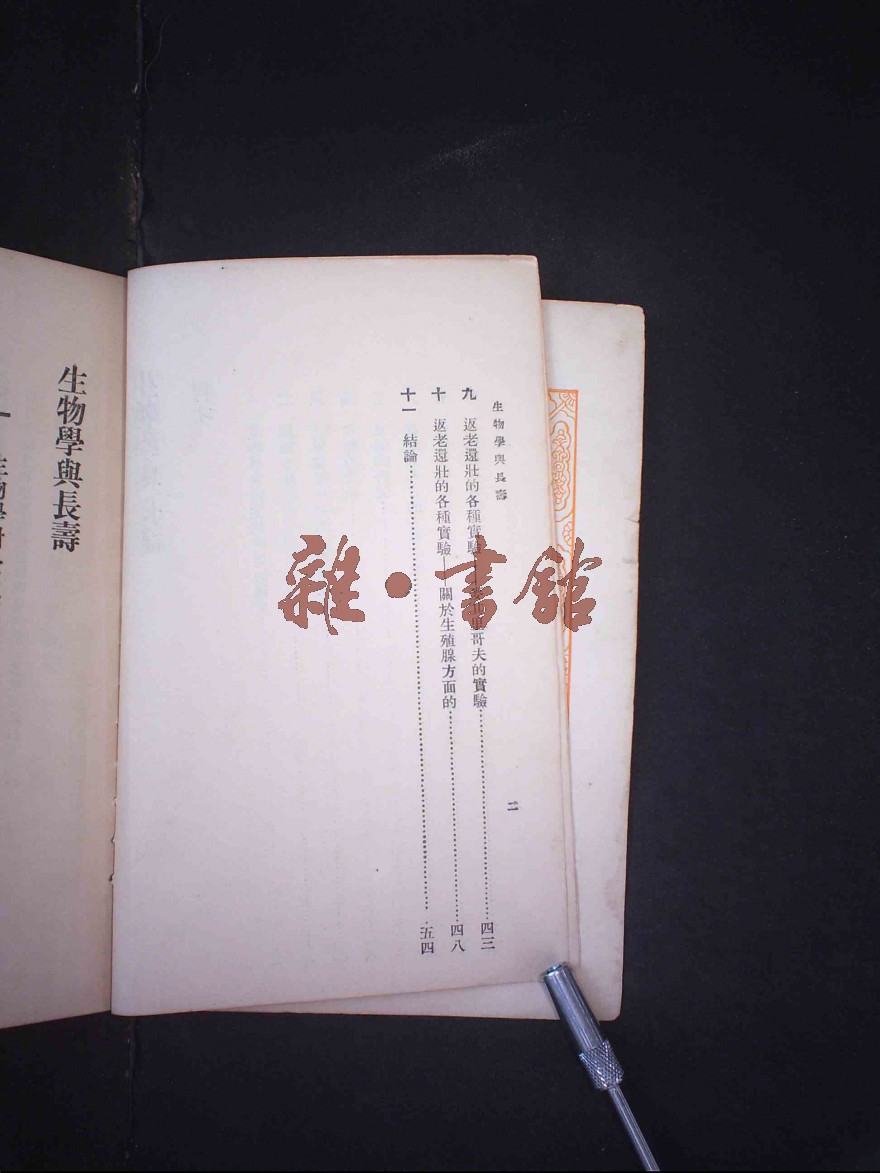 生物學與長壽
九 返老還壯的各種實驗 哥夫的實驗……四三
十 返老還壯的各種實驗——關於生殖腺方面的……四八
十一 結論……五四
二
生物學與長壽
一 生物學
雜·書館